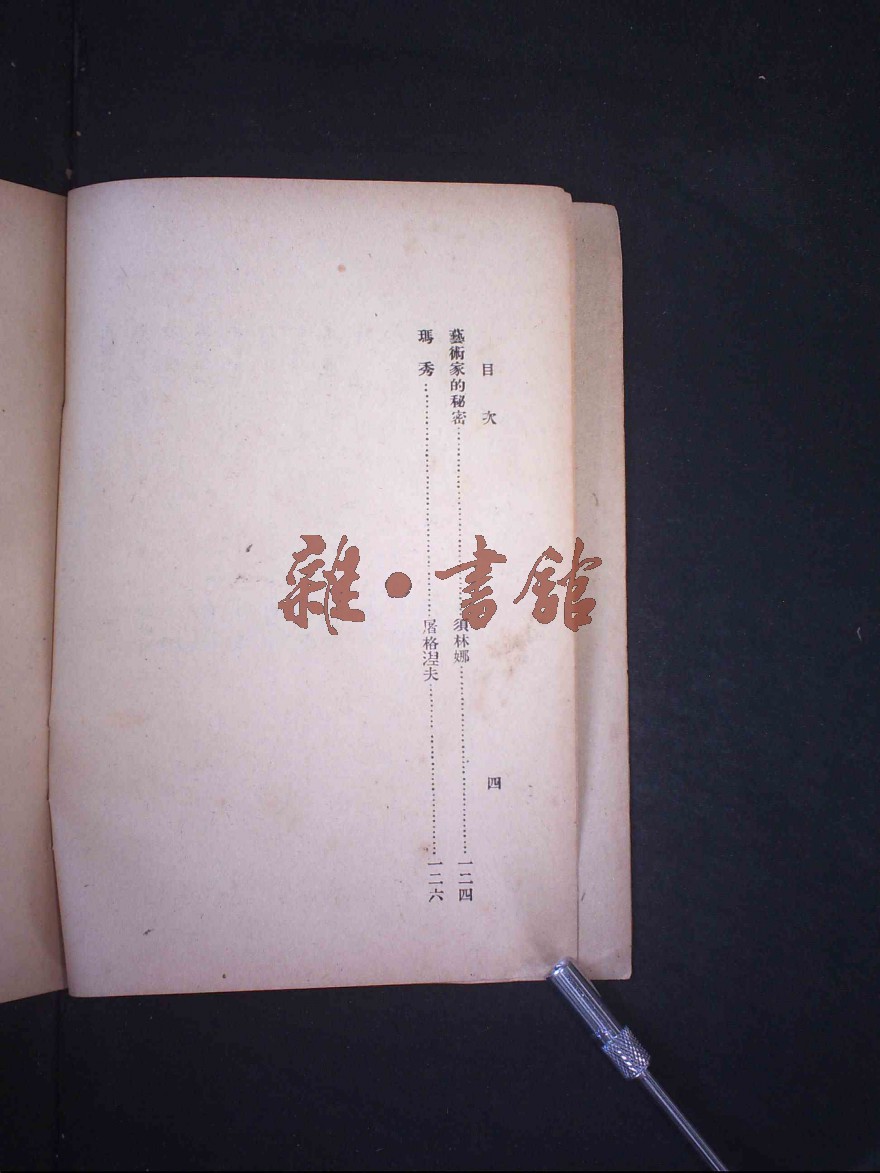 目次 四
藝術家的秘密……須林娜……一二四
瑪秀……屠格涅夫……一二六
雜·書館